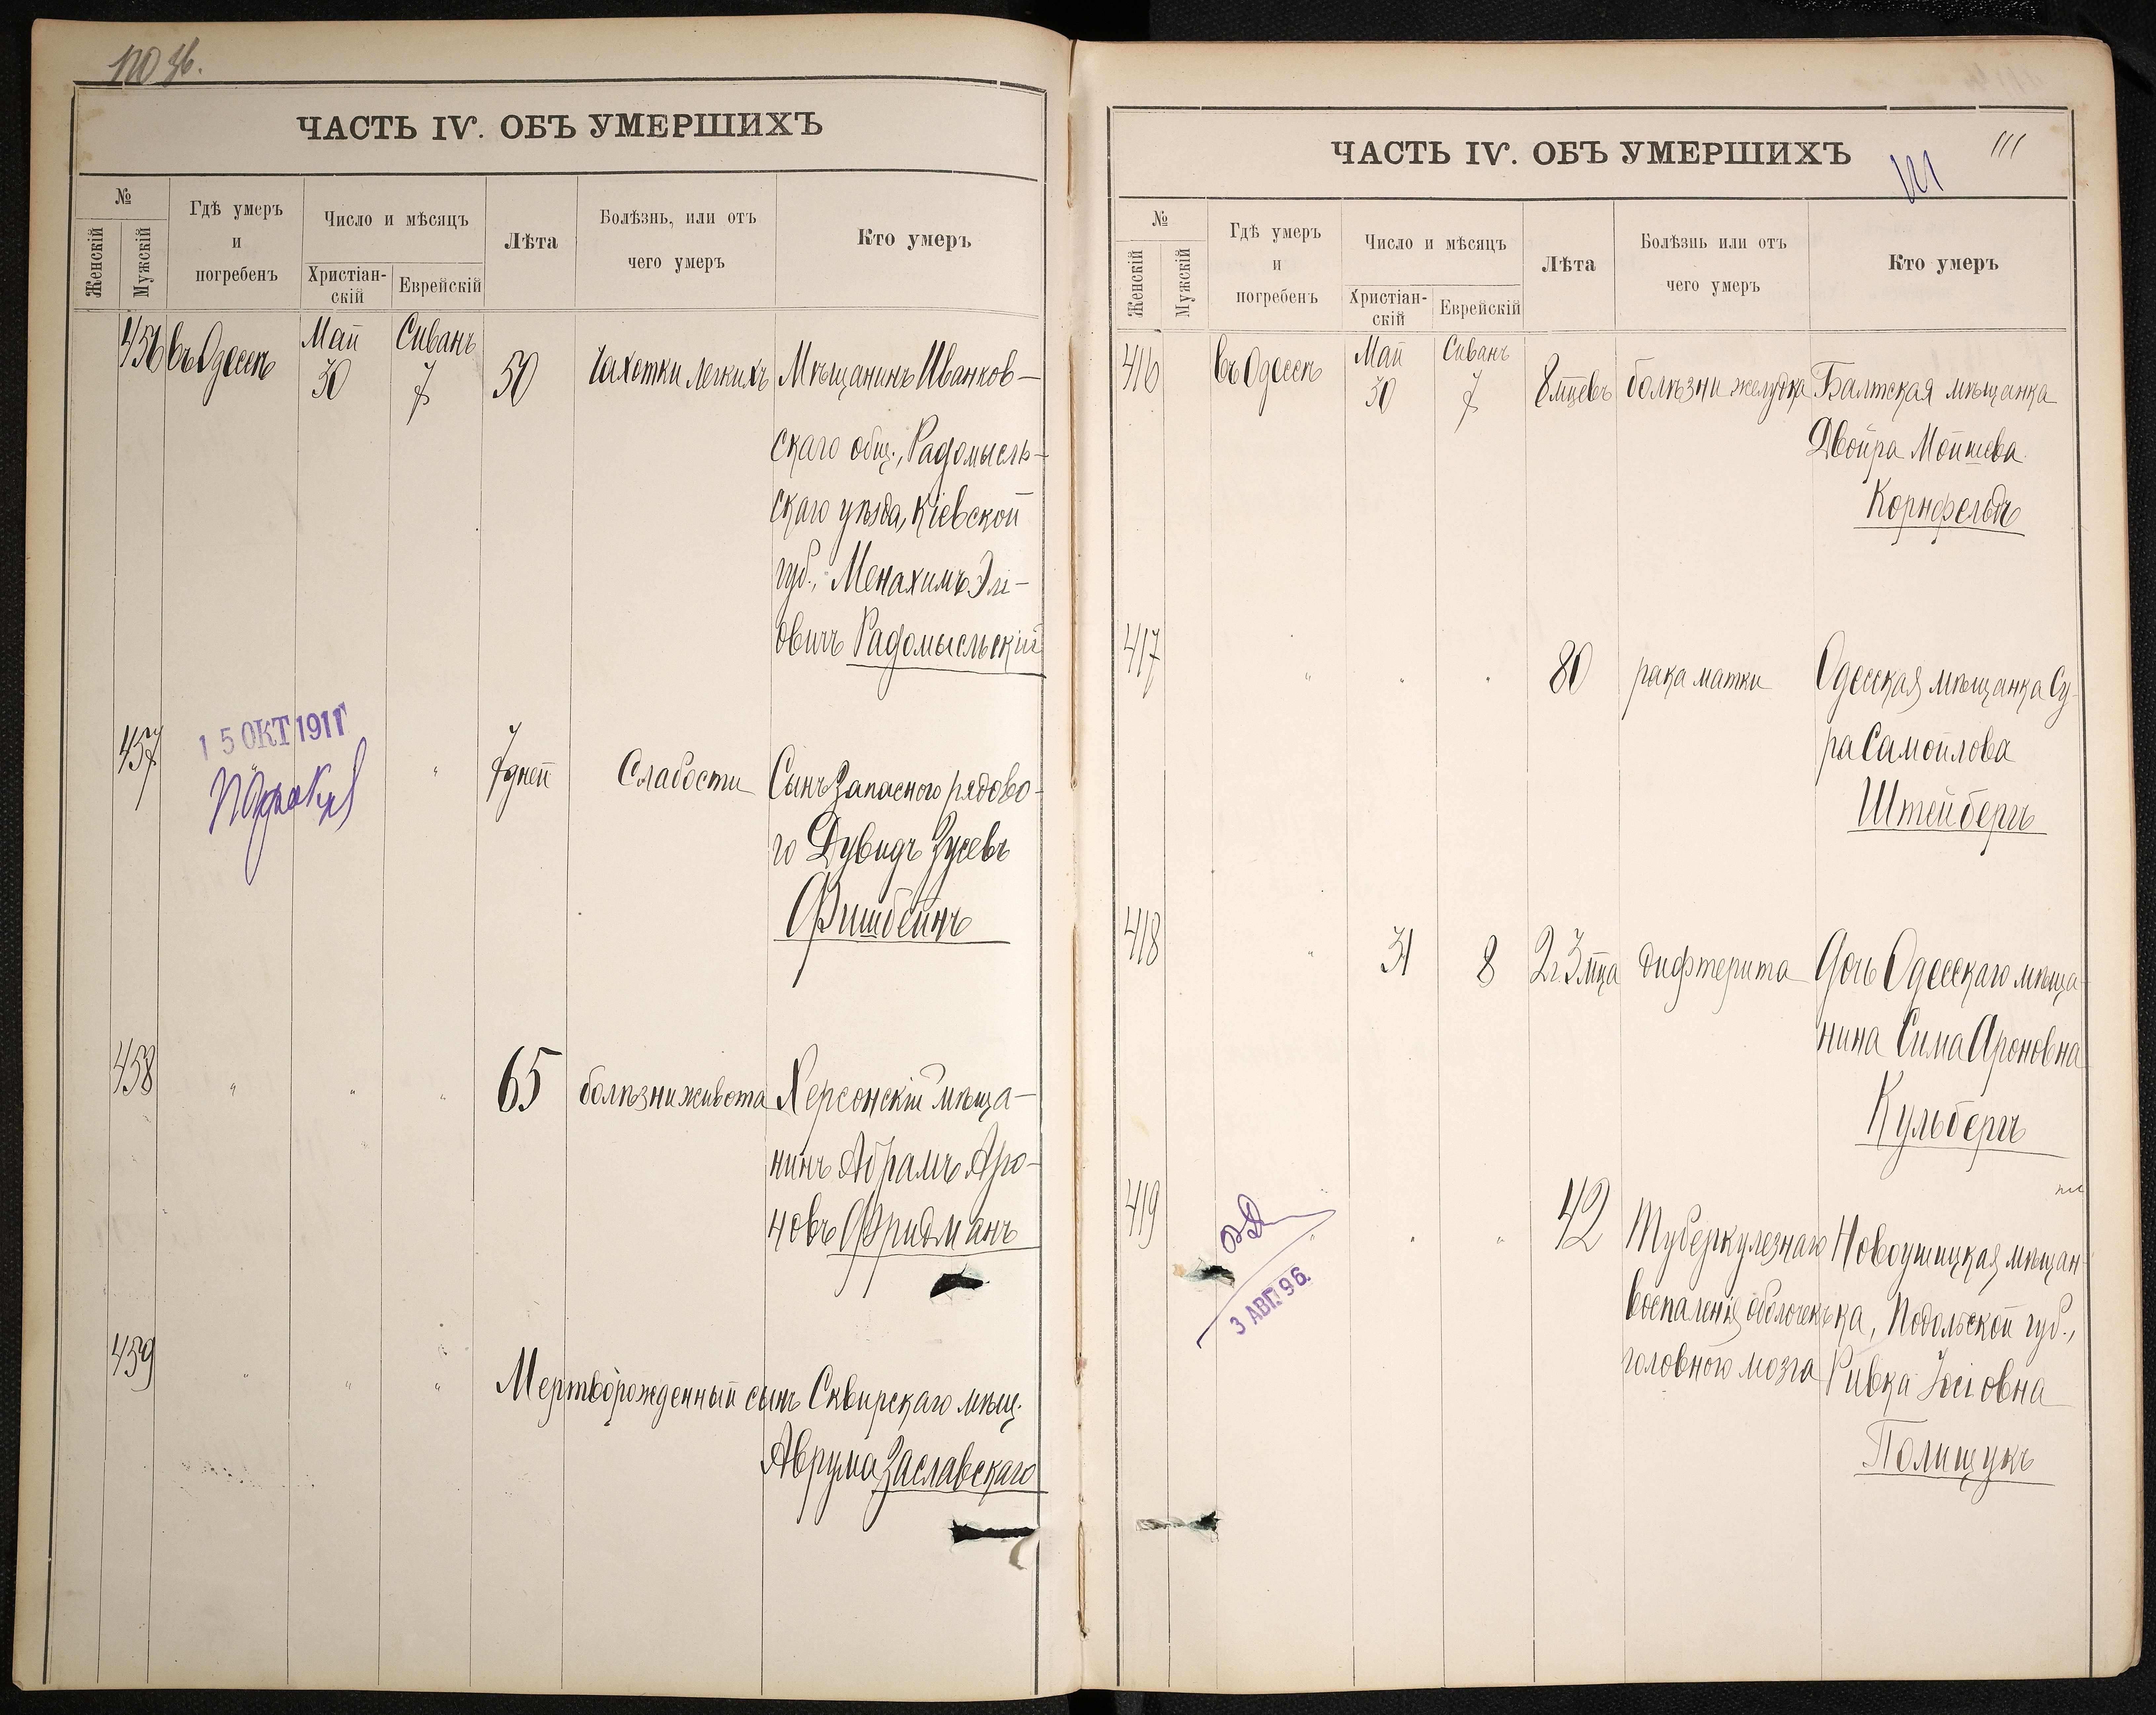 110 об.
ЧАСТЬ IV. ОБЪ УМЕРШИХЪ
№
Женскій
Мужскій
Гдѣ умеръ
и
погребенъ
Число и мѣсяцъ
Христіан-
скій
Еврейскій
Лѣта
Болѣзнь, или отъ
чего умеръ
Кто умеръ
456 въ Одессѣ Май 30 Сиванъ 7 50 Чахотки легкихъ Мѣщанинъ Иванков-
скаго общ., Радомысль-
скаго уѣзда, Кіевской
губ., Менахимъ Элі-
овичъ Радомысльскій
15 ОКТ 1911 Г
457 " 7 дней Слабости Сынъ Запаснаго рядово-
го Дувидъ Зусевъ
Фишбейнъ
458 " " " 65 болѣзни живота Херсонскій мѣща-
нинъ Абрамъ Аро-
новъ Фридманъ
459 " " " Мертворожденный сынъ Сквирскаго мѣщ.
Аврума Заславскаго
111
111
ЧАСТЬ IV. ОБЪ УМЕРШИХЪ
№
Женскій
Мужскій
Гдѣ умеръ
и
погребенъ
Число и мѣсяцъ
Христіан-
скій
Еврейскій
Лѣта
Болѣзнь или отъ
чего умеръ
Кто умеръ
416 въ Одессѣ Май 30 Сиванъ 7 8 мцевъ болѣзни желудка Балтская мѣщанка
Двойра Мойшева
Корнфельдъ
417 " " " 80 рака матки Одесская мѣщанка Су-
ра Самойлова
Штейбергъ
418 " 31 8 2 г. 3 мца дифтерита Дочь Одесскаго мѣща-
нина Сима Ароновна
Кульбергъ
419 " " " 42 Туберкулезнаго Новоушицкая мѣщан-
воспаленія оболочекъ ка, Подольской губ.,
головного мозга Ривка Іосіовна
Полищукъ
3 АВГ. 96.